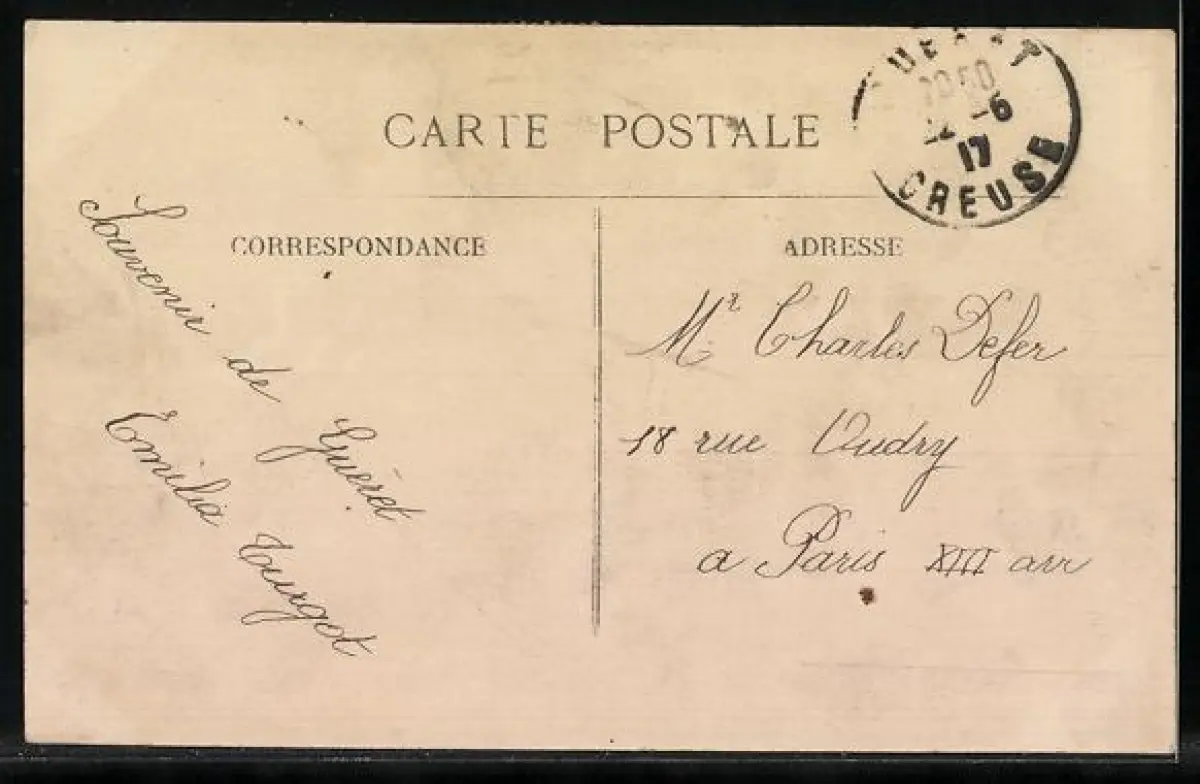 CARTE POSTALE
CREUSE
-6
17
CORRESPONDANCE
Souvenir de Guéret
Emilia Turgot
ADRESSE
Mr Charles Defer
18 rue Oudry
a Paris XIII arr